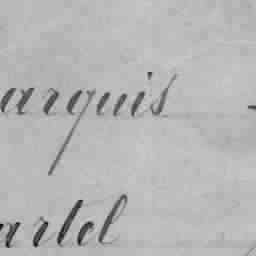 arquis
artel